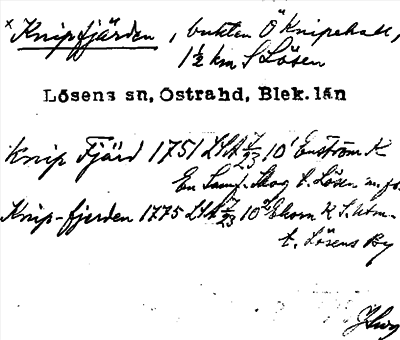 × Knipfjärden, bukten Ö Knipehall,
1½ km S Lösen
Lösens sn, Östrahd, Blek. län
Knip Fjärd 1751 LSA 7/23 10¹ Enström K
En Samf. Skog t. Lösen m. fl.
Knip-fjerden 1775 LSA 7/23 10² Ekorn K S. Utm.
t. Lösens By